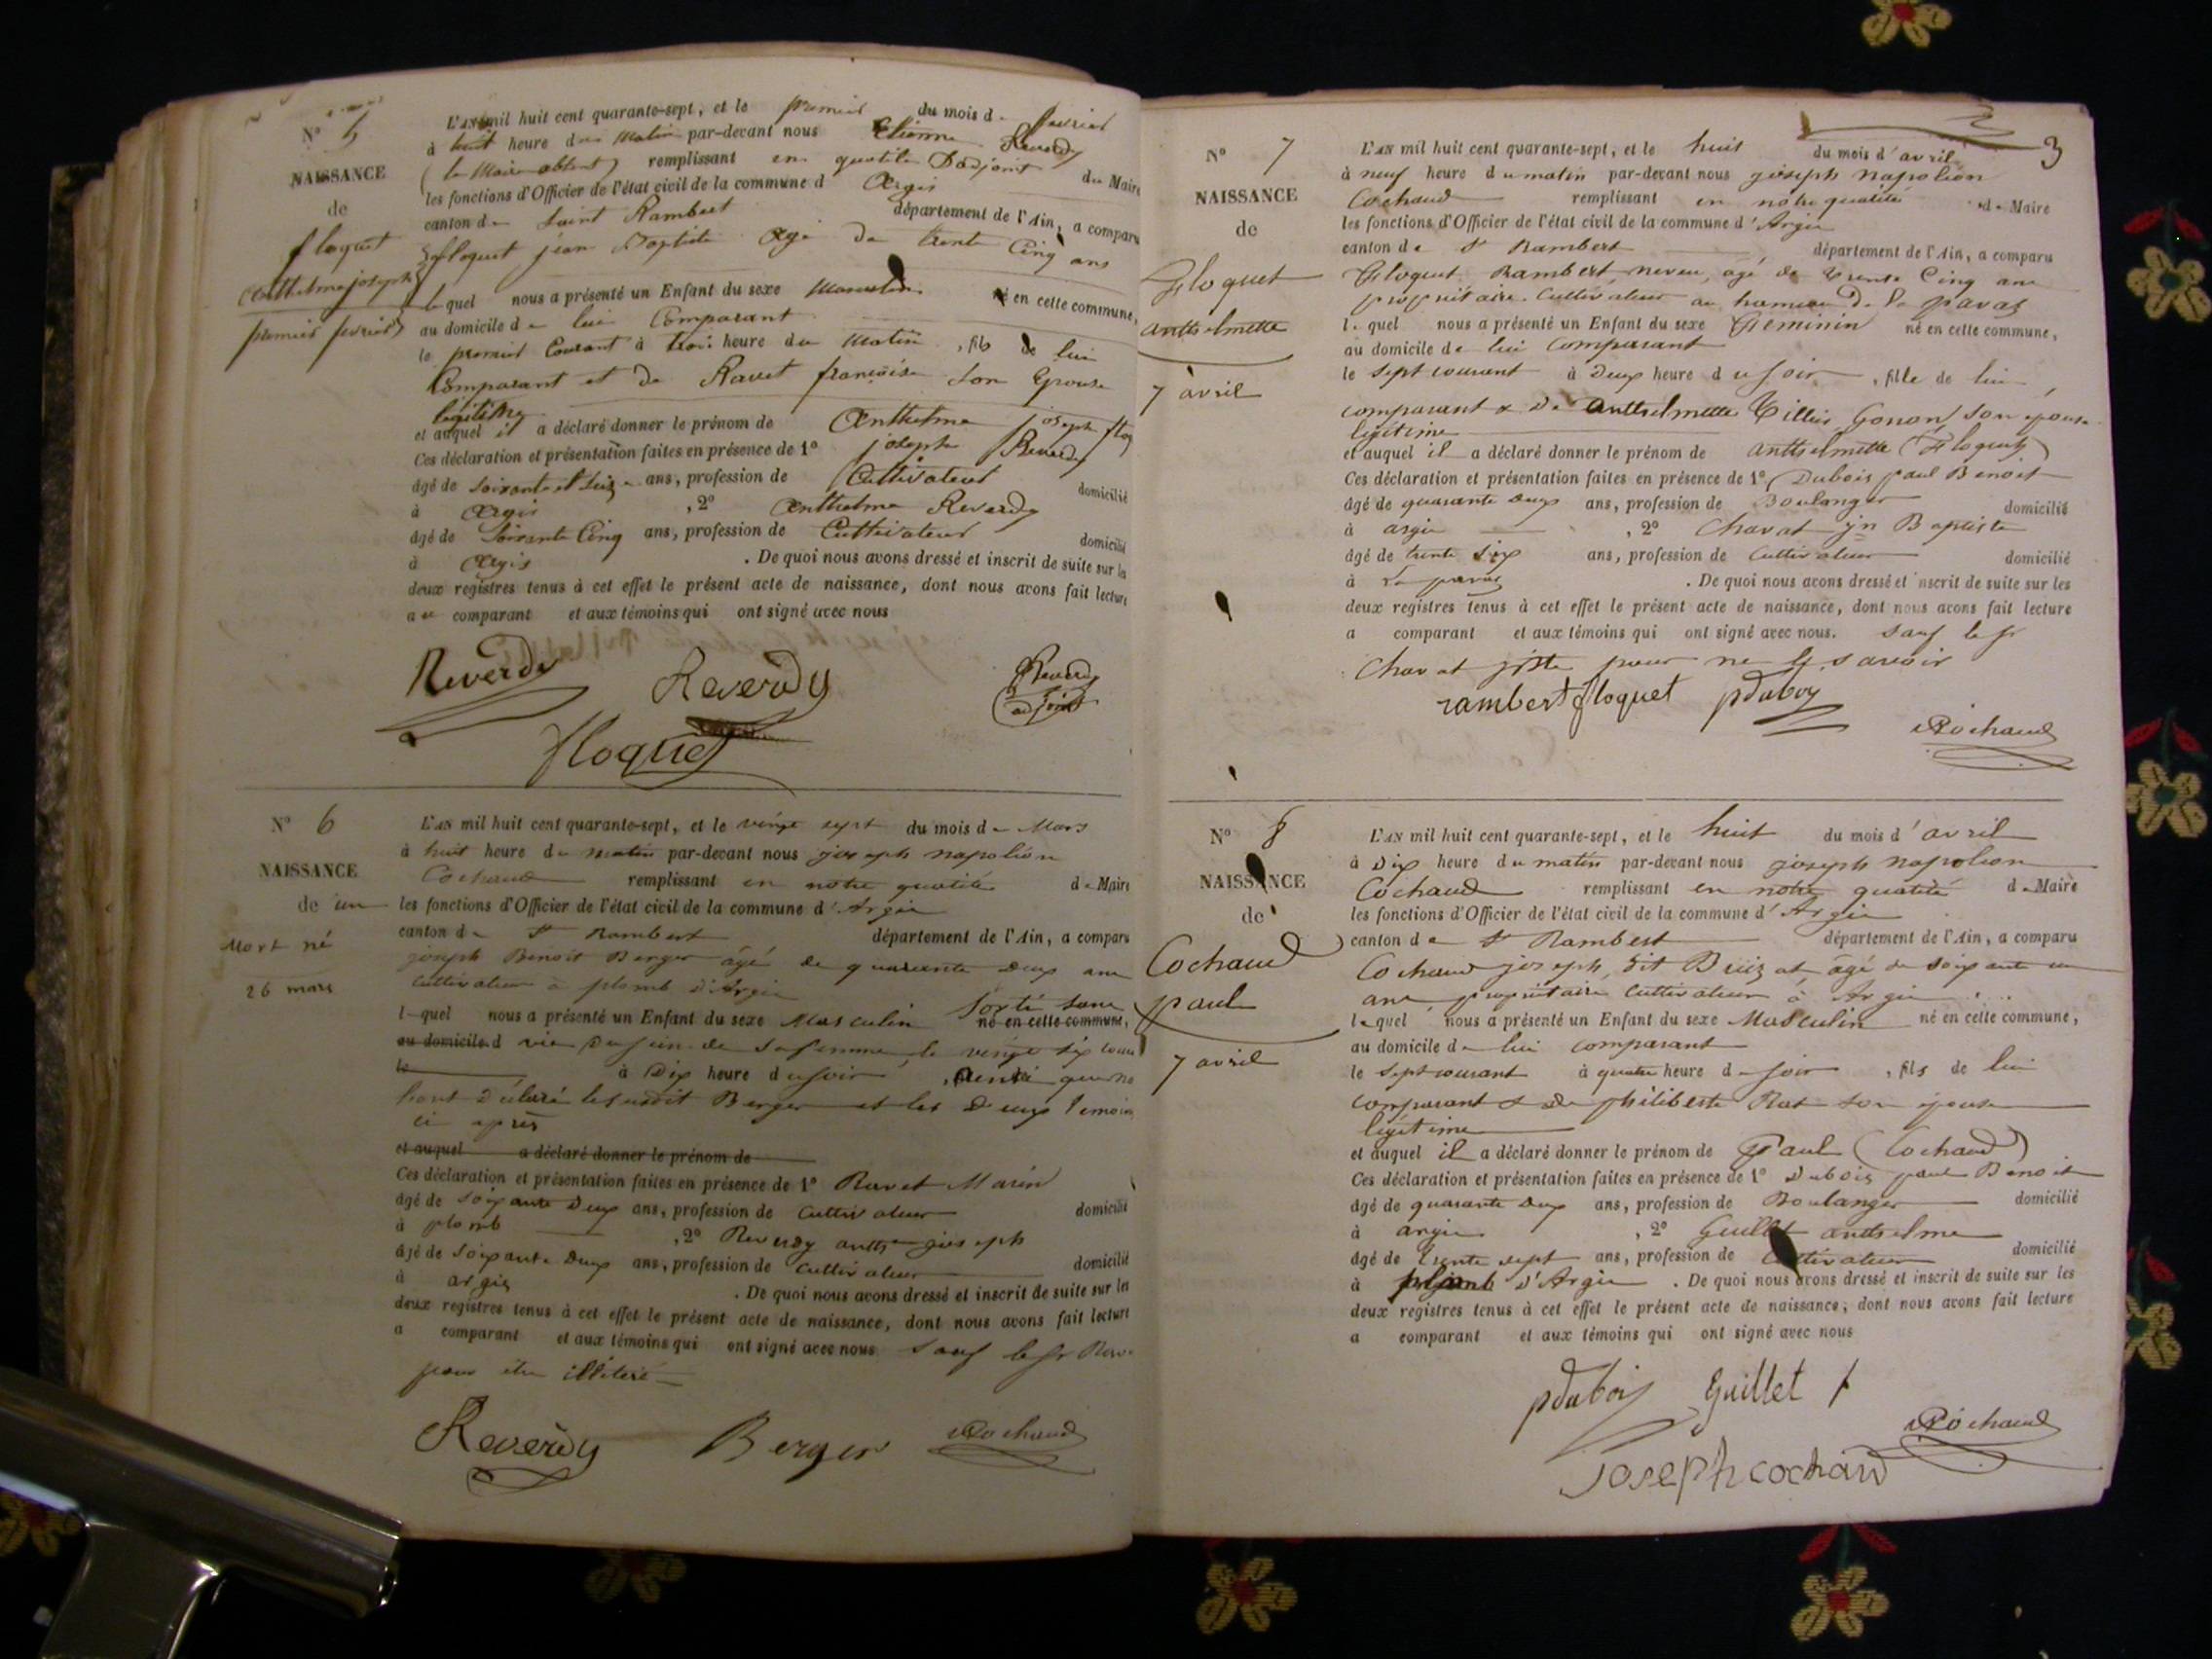 N° 5
NAISSANCE
de
floquet
Anthelme joseph
premier fevrier
L'AN mil huit cent quarante-sept, et le premier du mois de fevrier
à huit heure du Matin par-devant nous Etienne Reverdy
(le Maire absent) remplissant en qualité D'adjoint du Maire
les fonctions d'Officier de l'état civil de la commune d Argis
canton de Saint Rambert département de l'Ain, a comparu
floquet jean Baptiste Agé de trente Cinq ans
lequel nous a présenté un Enfant du sexe Masculin né en cette commune,
au domicile de lui Comparant
le premier Courant à trois heure du Matin , fils de lui
Comparant et de Ravet françoise son Epouse
legitime
et auquel il a déclaré donner le prénom de Anthelme joseph
Ces déclaration et présentation faites en présence de 1° joseph Reverdy
âgé de soixante et seize ans, profession de Cultivateur domicilié
à Argis , 2° Anthelme Reverdy
âgé de Soixante Cinq ans, profession de Cultivateur domicilié
à Argis . De quoi nous avons dressé et inscrit de suite sur les
deux registres tenus à cet effet le présent acte de naissance, dont nous avons fait lecture
au comparant et aux témoins qui ont signé avec nous
Reverdy Reverdy Reverdy
adjoint
floquet
N° 6
NAISSANCE
de un
Mort né
26 mars
L'AN mil huit cent quarante-sept, et le vingt sept du mois de Mars
à huit heure du matin par-devant nous joseph napoléon
Cochaud remplissant en notre qualité de Maire
les fonctions d'Officier de l'état civil de la commune d'Argis
canton de St Rambert département de l'Ain, a comparu
joseph Benoit Berger âgé de quarante deux ans
cultivateur à plomb d'Argis
lequel nous a présenté un Enfant du sexe Masculin sorti sans né en cette commune,
au domicile d vie du sein de sa femme le vingt six
le à Dix heure du soir
déclaré le susdit Berger et les Deux témoins
ci après
et auquel a déclaré donner le prénom de
Ces déclaration et présentation faites en présence de 1° Ravet Marin
âgé de soixante Deux ans, profession de Cultivateur domicilié
à plomb , 2° Reverdy anthe joseph
âgé de soixante Deux ans, profession de Cultivateur domicilié
à argis . De quoi nous avons dressé et inscrit de suite sur les
deux registres tenus à cet effet le présent acte de naissance, dont nous avons fait lecture
a comparant et aux témoins qui ont signé avec nous. Sauf le sr
pour être illitéré
Reverdy Berger Cochaud
3
N° 7
NAISSANCE
de
Floquet
antthelmette
7 avril
L'AN mil huit cent quarante-sept, et le huit du mois d'avril
à neuf heure du matin par-devant nous joseph napoléon
Cochaud remplissant en notre qualité de Maire
les fonctions d'Officier de l'état civil de la commune d'Argis
canton de St Rambert département de l'Ain, a comparu
Floquet Rambert neveu, agé de trente Cinq ans
propriétaire Cultivateur au hameau de
lequel nous a présenté un Enfant du sexe féminin né en cette commune,
au domicile de lui Comparant
le sept courant à Deux heure du soir , fille de lui
comparant & De antthelmette Gonon son épouse
légitime
et auquel il a déclaré donner le prénom de antthelmette (Floquet)
Ces déclaration et présentation faites en présence de 1° Dubois paul Benoit
âgé de quarante deux ans, profession de Boulanger domicilié
à argis , 2° Chavat jn Baptiste
âgé de trente six ans, profession de Cultivateur domicilié
à . De quoi nous avons dressé et inscrit de suite sur les
deux registres tenus à cet effet le présent acte de naissance, dont nous avons fait lecture
a comparant et aux témoins qui ont signé avec nous. Sauf le sr
Chavat pour ne le savoir
rambert floquet pdubois
Cochaud
N° 8
NAISSANCE
de
Cochaud
paul
7 avril
L'AN mil huit cent quarante-sept, et le huit du mois d'avril
à Dix heure du matin par-devant nous joseph napoléon
Cochaud remplissant en notre qualité de Maire
les fonctions d'Officier de l'état civil de la commune d'Argis
canton de St Rambert département de l'Ain, a comparu
Cochaud joseph, dit âgé de soixante un
ans propriétaire Cultivateur à Argis
lequel nous a présenté un Enfant du sexe Masculin né en cette commune,
au domicile de lui comparant
le sept courant à quatre heure du soir , fils de lui
comparant & De philiberte Rat son épouse
légitime
et auquel il a déclaré donner le prénom de Paul (Cochaud)
Ces déclaration et présentation faites en présence de 1° Dubois paul Benoit
âgé de quarante deux ans, profession de Boulanger domicilié
à argis , 2° Guillet anthelme
âgé de trente sept ans, profession de Cultivateur domicilié
à plomb d'Argis . De quoi nous avons dressé et inscrit de suite sur les
deux registres tenus à cet effet le présent acte de naissance, dont nous avons fait lecture
a comparant et aux témoins qui ont signé avec nous
pdubois Guillet
Cochaud
Joseph cochard